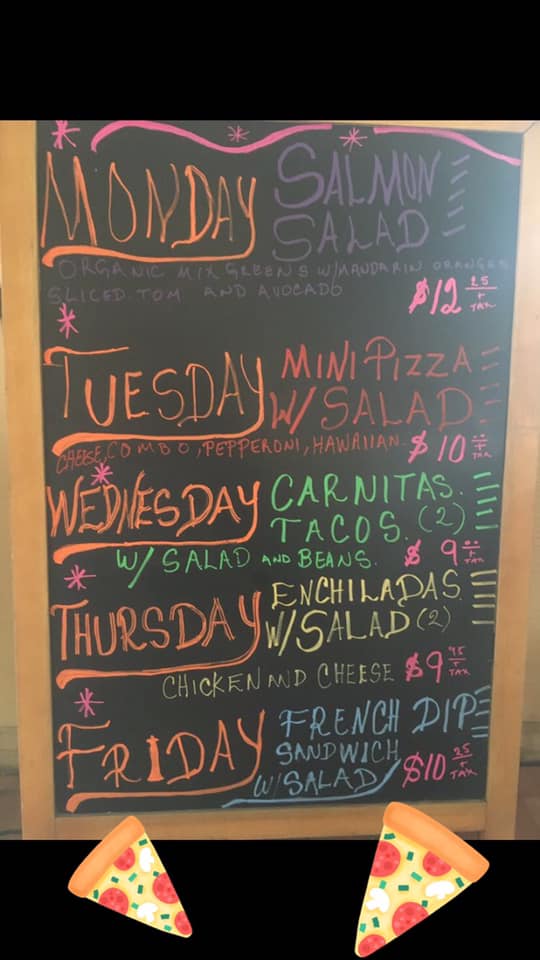 MONDAY
SALMON
SALAD
ORGANIC MIX GREENS W/MANDARIN ORANGES
SLICED TOM AND AVOCADO
$12 25 + TAX
TUESDAY
MINI PIZZA
W/SALAD
CHEESE, COMBO, PEPPERONI, HAWAIIAN.
$10 + TAX
WEDNESDAY
CARNITAS.
TACOS. (2)
W/ SALAD AND BEANS.
$ 9 00 + TAX
THURSDAY
ENCHILADAS
W/SALAD (2)
CHICKEN AND CHEESE
$9 95 + TAX
FRIDAY
FRENCH DIP
SANDWICH
W/SALAD
$10 25 + TAX